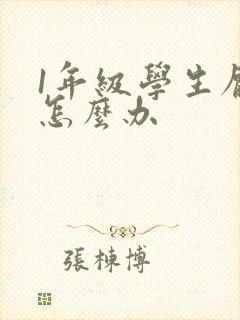 1年級學生
怎麼办
張棟博